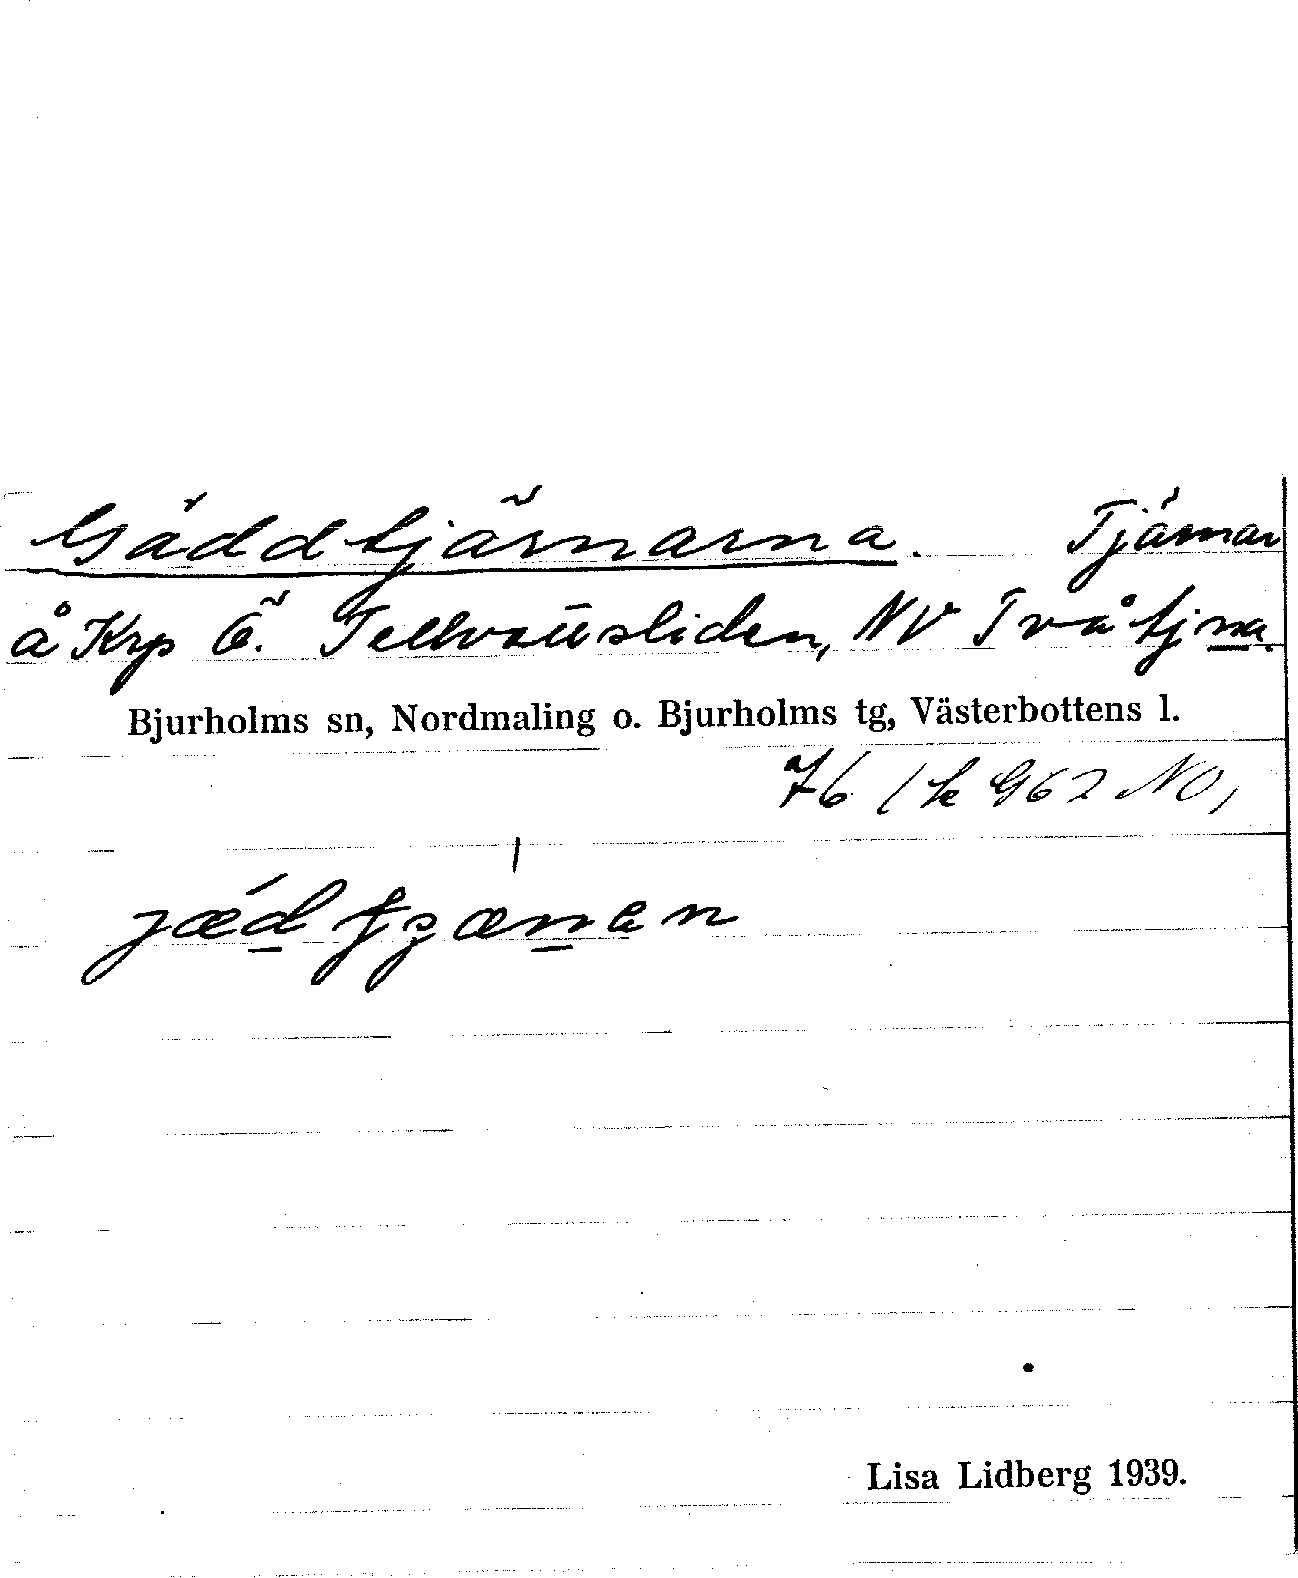 Gäddtjärnarna. Tjärnar
å Krp Ö. Tellvattsliden, NV Tvåtjna.
Bjurholms sn, Nordmaling o. Bjurholms tg, Västerbottens l.
76 1 k G62 NO,
Lisa Lidberg 1939.